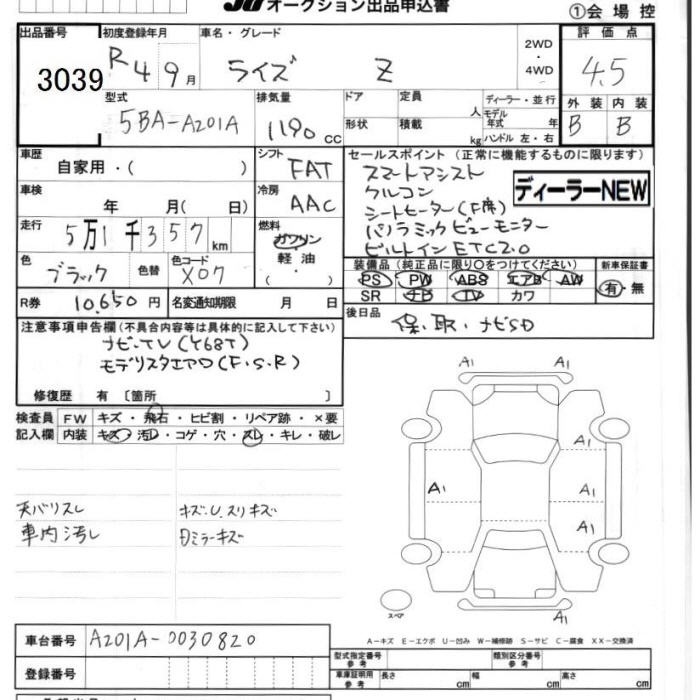 オークション出品申込書
①会場控
出品番号
3039
初度登録年月
R4 9月
車名・グレード
ライズ Z
2WD
・
4WD
評価点
4.5
外装 内装
B B
型式
5BA-A201A
排気量
1190cc
ドア
定員
人
ディーラー・並行
形状
積載
kg
モデル年式
年
ハンドル 左・右
車歴
自家用・( )
シフト
FAT
車検
年 月( 日)
冷房
AAC
走行
5万1千357km
燃料
ガソリン
・
軽油
( )
色
ブラック
色替
色コード
X07
R券
10,650円
名変通知期限 月 日
セールスポイント (正常に機能するものに限ります)
スマートアシスト
クルコン
シートヒーター(F席)
パノラミックビューモニター
ビルトインETC2.0
ディーラーNEW
装備品(純正品に限り〇をつけてください)
新車保証書
PS PW ABS エアB AW
SR ナビ TV カワ
有・無
後日品
保、取、ナビSD
注意事項申告欄(不具合内容等は具体的に記入して下さい)
ナビ・TV(Y68T)
モデリスタエアロ(F.S.R)
修復歴 有 〔箇所 〕
検査員
記入欄
FW キズ・飛石・ヒビ割・リペア跡・×要
内装 キズ・汚レ・コゲ・穴・スレ・キレ・破レ
天バリスレ
車内汚レ
キズU、スリキズ
Dミラーキズ
A1 A1
A1
A1 A1
A1
A1
スペア
A1
A-キズ E-エクボ U-凹み W-補修跡 S-サビ C-腐食 XX-交換済
車台番号
A201A-0030820
登録番号
型式指定番号
参考
類別区分番号
参考
車庫証明用
参考
長さ cm
幅 cm
高さ cm